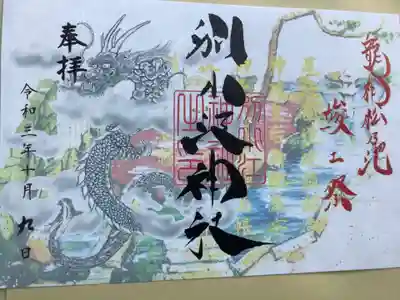 龍神松乃池
竣工祭
別小江神社
奉拝
令和三年十月九日